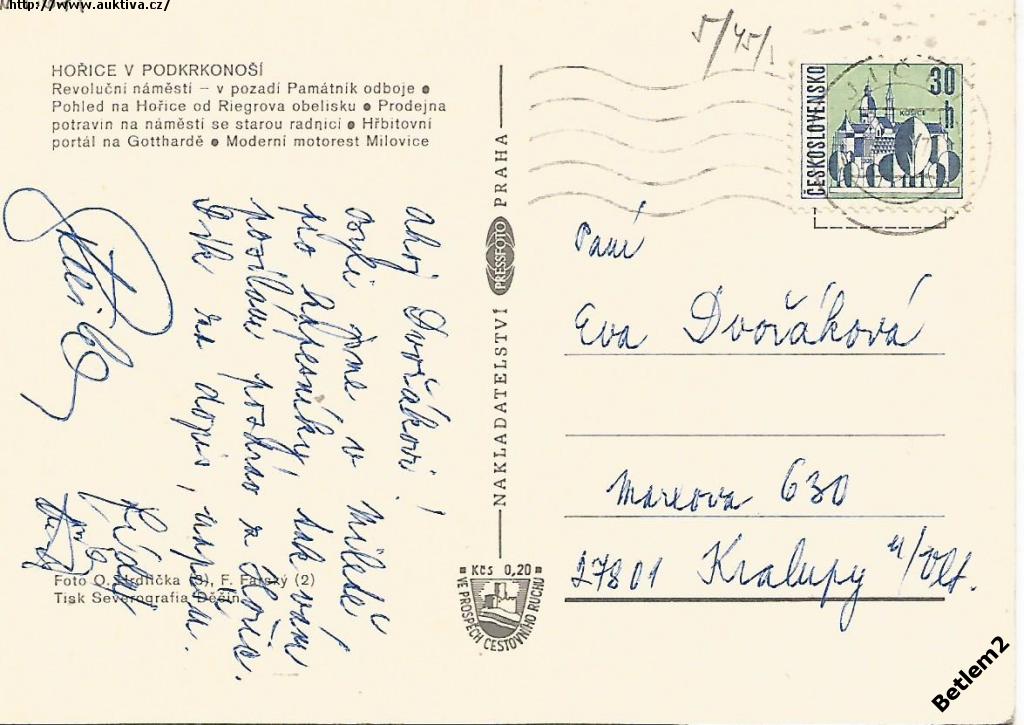 http://www.auktiva.cz/
5/45/1
HOŘICE V PODKRKONOŠÍ
Revoluční náměstí – v pozadí Památník odboje ●
Pohled na Hořice od Riegrova obelisku ● Prodejna
potravin na náměstí se starou radnicí ● Hřbitovní
portál na Gotthardě ● Moderní motorest Milovice
ahoj Dvořákovi!
jsme v Miletí
pro
posílám pozdrav z Hořic.
Dík za dopis,
NAKLADATELSTVÍ PRESSFOTO PRAHA
ČESKOSLOVENSKO
30 h
KOŠICE
JIČ
Paní
Eva Dvořáková
Marxova 630
27801 Kralupy n/Vlt.
Foto O. Hrdlička (3), F. Farský (2)
Tisk Severografia Děčín
Kčs 0,20
VE PROSPĚCH CESTOVNÍHO RUCHU
Betlem2